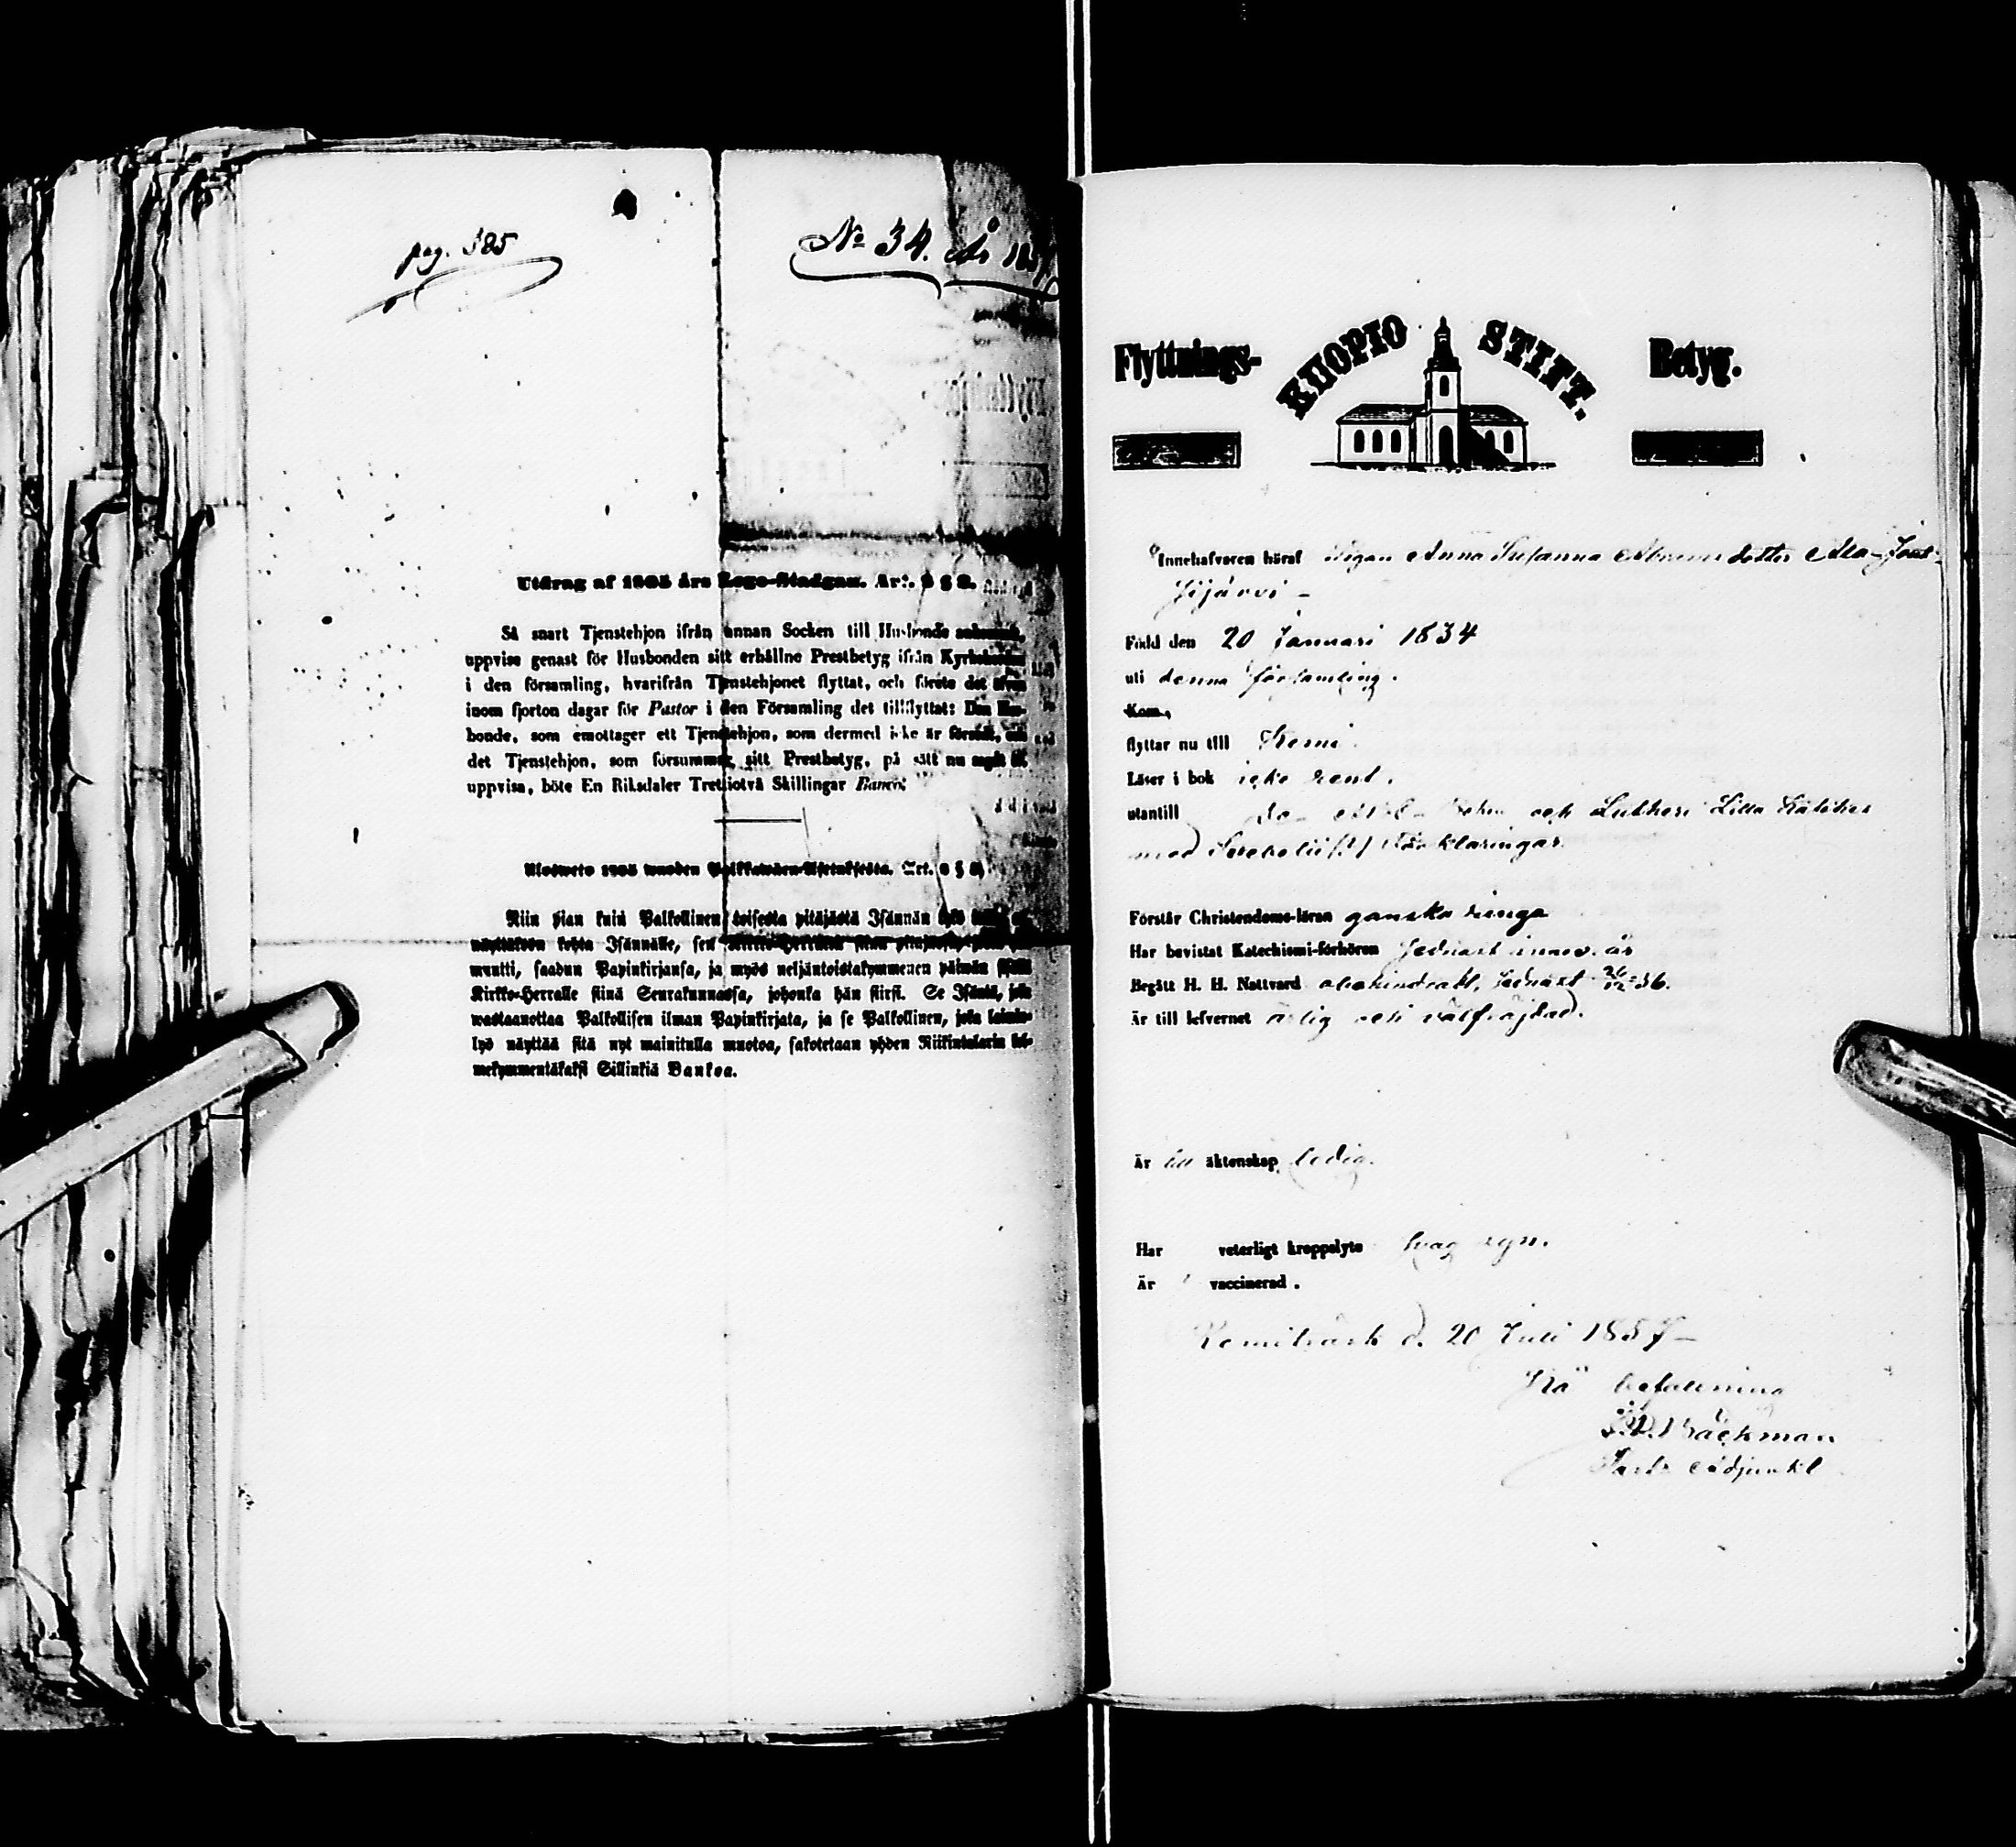 pag. 385
No 34. År 185
Utdrag af 1805 års Lego-Stadgan. Art. § 2.
Så snart Tjenstehjon ifrån annan Socken till Husbonde
uppvise genast för Husbonden sitt erhållne Prestbetyg ifrån
i den församling, hvarifrån Tjenstehjonet flyttat, och förete det
inom fjorton dagar för Pastor i den Församling det tillflyttat: Den Hus-
bonde, som emottager ett Tjenstehjon, som dermed icke är försedt, och
det Tjenstehjon, som försummar sitt Prestbetyg, på sätt nu sagdt är
uppvisa, böte En Riksdaler Trettiotvå Skillingar Banco.
Ulosweto 1805 wuoden Palkkawäen-Asetuksesta. Art. § 2
Niin pian kuin Palkollinen toisesta pitäjästä Isännän tykö
näyttäköön kohta Isännälle, sen
muutti, saadun Papinkirjansa, ja myös neljäntoistakymmenen päiwän
Kirkko-Herralle siinä Seurakunnassa, johonka hän siirsi. Se Isäntä, joka
wastaanottaa Palkollisen ilman Papinkirjata, ja se Palkollinen, joka laimin-
lyö näyttää sitä nyt mainitulla muotoa, sakotetaan yhden Riikintalarin kol-
mekymmentäkaksi Sillinkiä Bankoa.
Flyttnings- KUOPIO STIFT. Betyg.
Innehafvaren häraf Pigan Anna Susanna dotter Ala-
Född den 20 Januari 1834
uti denna församling.
Kom.,
flyttar nu till Kemi
Läser i bok icke rent.
utantill och Lutheri Lilla
med Svebelii förklaringar.
Förstår Christendoms-läran ganska ringa
Har bevistat Katechismi-förhören sednast innev. år
Begått H. H. Nattvard oförhindradt, sednast 26/12 56.
Är till lefvernet ärlig och välfräjdad.
Är till äktenskap ledig.
Har veterligt kroppslyte svag syn.
Är vaccinerad.
Kemiträsk d. 20 Juli 1857
På befallning
Bäckman
Adjunkt